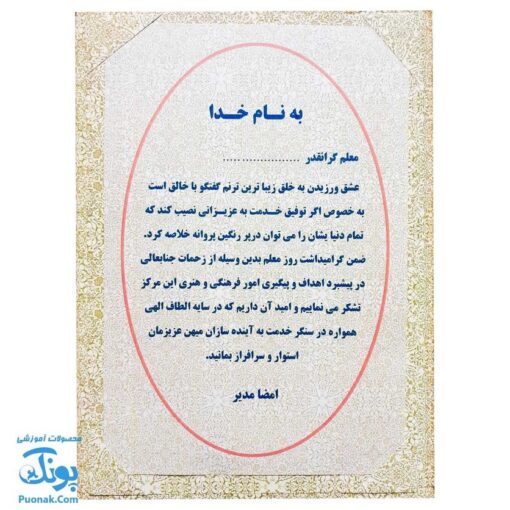 به نـام خـدا
معلم گرانقدر ................ .....
عشق ورزیدن به خلق زیبا ترین ترنم گفتگو با خالق است
به خصوص اگر توفیق خـدمت به عزیـزانی نصیب کند که
تمام دنیا یشان را می توان درپر رنگین پروانه خلاصه کرد.
ضمن گرامیداشت روز معلم بدین وسیله از زحمات جنابعالی
در پیشبرد اهداف و پیگیری امور فرهنگی و هنری این مرکز
تشکر می نماییم و امید آن داریم که در سایه الطاف الهی
همواره در سنگر خدمت به آینده سازان میهن عزیزمان
استوار و سرافراز بمانید.
امضا مدیر
محصولات آموزشی
پونک
Puonak.Com